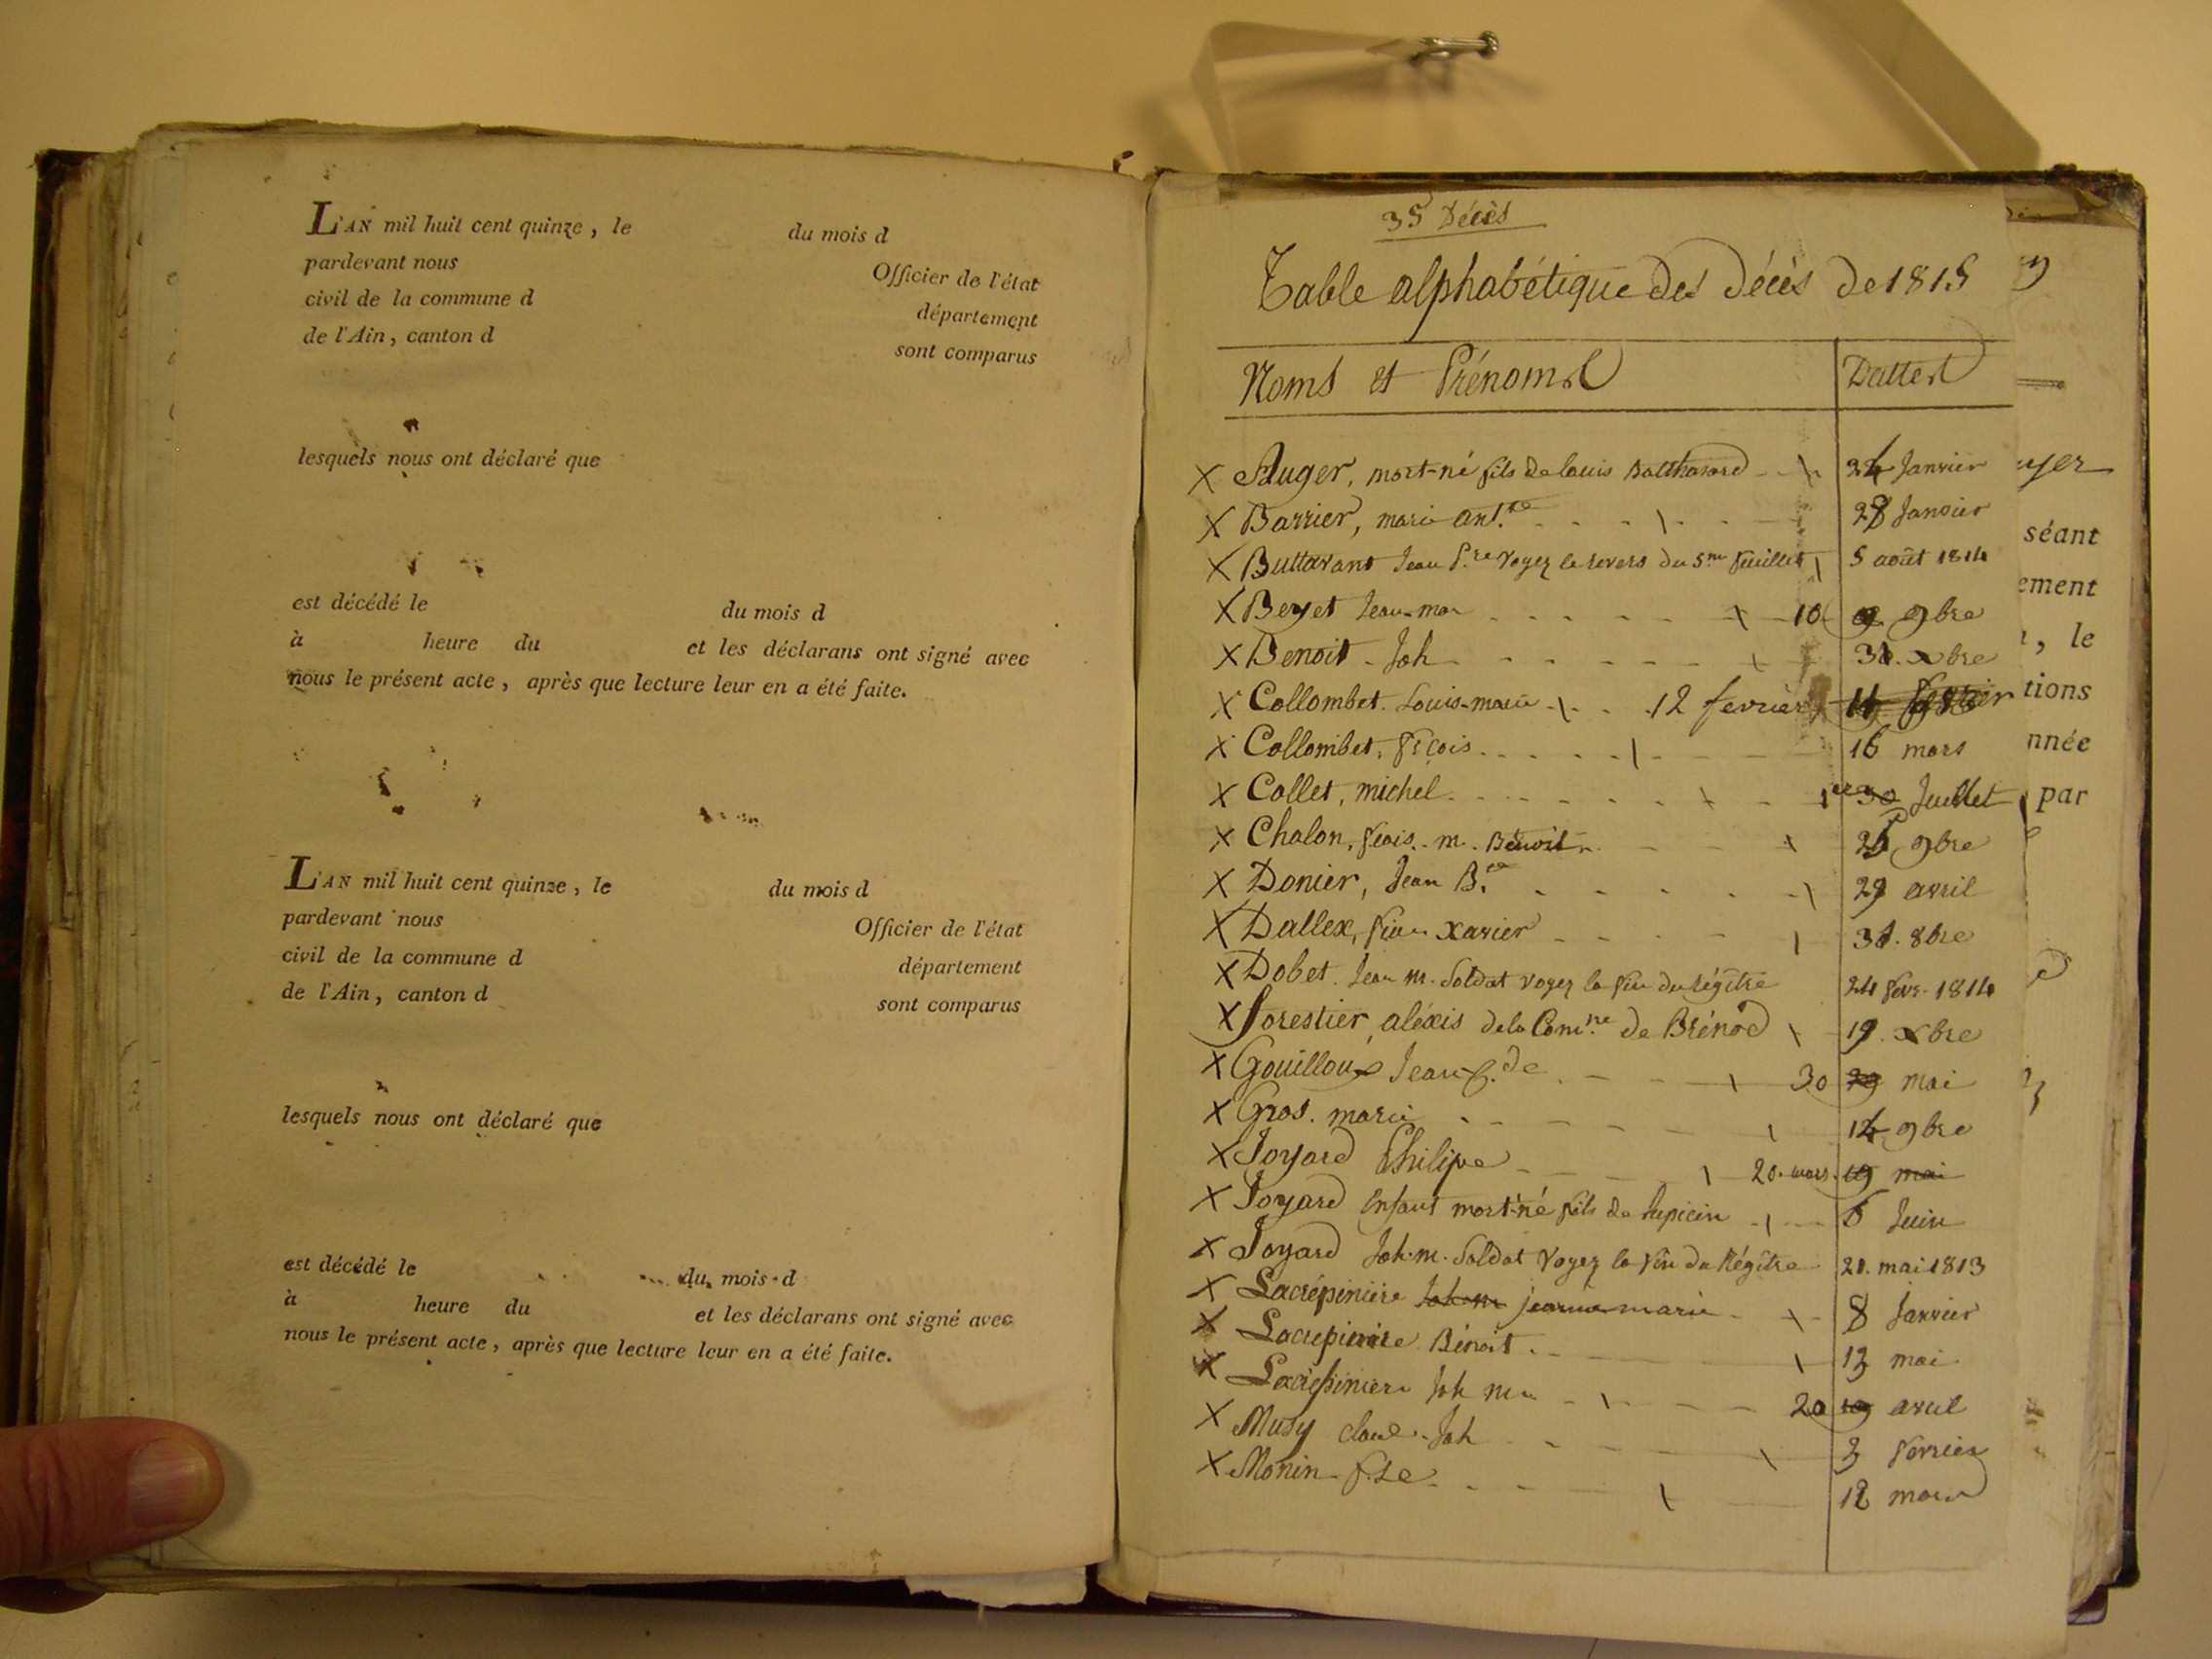 L'AN mil huit cent quinze, le du mois d
pardevant nous Officier de l'état
civil de la commune d département
de l'Ain, canton d sont comparus
lesquels nous ont déclaré que
est décédé le du mois d
à heure du et les déclarans ont signé avec
nous le présent acte, après que lecture leur en a été faite.
L'AN mil huit cent quinze, le du mois d
pardevant nous Officier de l'état
civil de la commune d département
de l'Ain, canton d sont comparus
lesquels nous ont déclaré que
est décédé le du mois d
à heure du et les déclarans ont signé avec
nous le présent acte, après que lecture leur en a été faite.
35 Décès
Table alphabétique des décès de 1815
Noms et Prénoms Dattes
X Auger, mort-né fils de louis Balthazard 24 Janvier
X Barrier, marie ant.te 28 Janvier
X Buttavant Jean P.re voyez le revers du 5me feuillet 5 août 1814
X Beyet Jean-mar 10 9bre
X Benoit Joh 30. xbre
X Collombet. Louis-marie 12 fevrier
X Collombet, frçois 16 mars
X Collet, michel Juillet
X Chalon, frçois. m. Benoit 9bre
X Donier, Jean B.te 29 avril
X Dallex, xavier 31. 8bre
X Dobet. Jean m. Soldat voyez la fin du régître 24 fevr. 1814
X forestier, aléxis de la Com.ne de Brénod 19. xbre
X Gouilloux Jean-C.de 30 29 mai
X Gros. marie 14 9bre
X Joyard Philipe 20. mars. 19 mai
X Joyard Enfant mort-né fils de lupicin 6 Juin
X Joyard Joh. m. Soldat voyez la fin du Régître 21. mai 1813
X Lacrépinière Joh m jeanne marie 8 Janvier
X Lacrépinière Bénoit 13 mai
X Lacrépiniere Joh m 20 19 avril
X Musy claud. Joh 3 fevrier
X Monin fse 12 mars
séant
ement
, le
tions
nnée
par